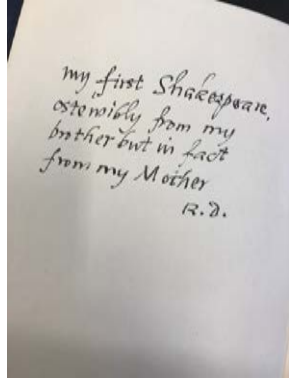 my first Shakespeare,
ostensibly from my
brother but in fact
from my Mother
R.D.